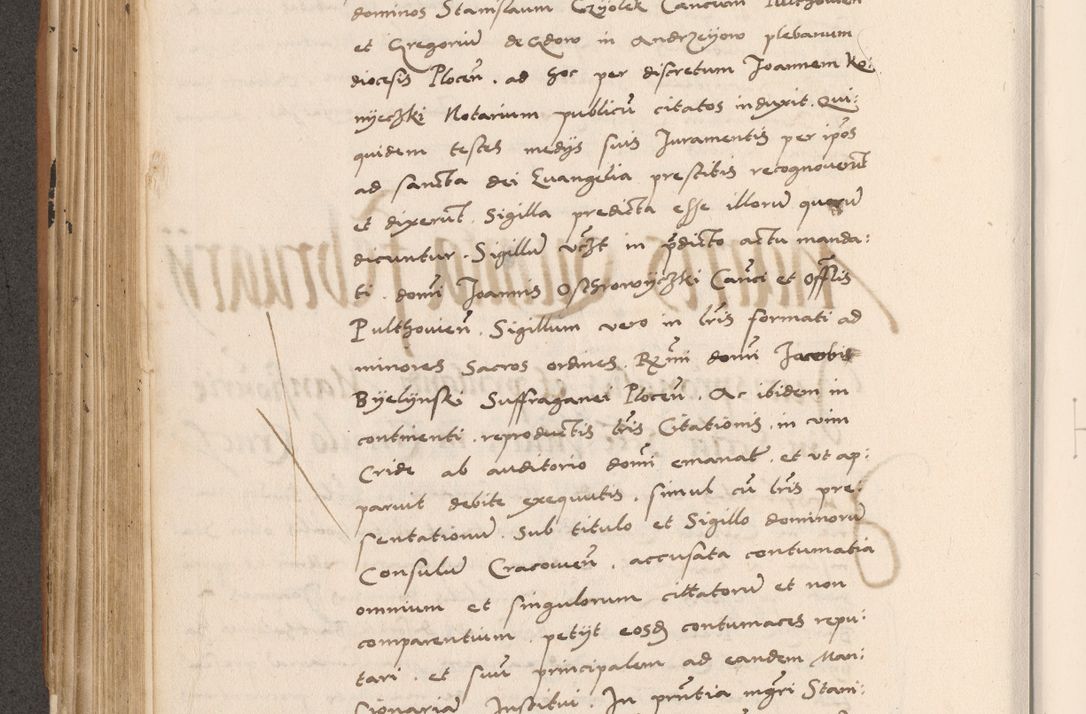 dominos Stanislaum Czyolek Pulthovien
et Gregoriū de Gdow in Andrzeyow plebanum
diocesis Plocen̄. ad hoc per discretum Joannem Ko:
nyeczki Notarium publicū citatos induxit. Qui:
quidem testes medijs suis Juramentis per ip̄os
ad sancta dei Euangelia prestitis recognoverūt
et dixerūt. Sigilla predicta esse illorū quorū
dicuntur. Sigillū vc̄ꝫt in p̄dicto actu manda:
ti. domī Joannis Osthrowyczki Canc̄i et Offālis
Pulthovien̄. Sigillum vero in lr̄is formati ad
minores Sacros ordines, Rmī domī Jacobi
Byelynski Suffraganei Plocen̄. Ac ibidem in
continenti. reproductis lr̄is Citationis. in vim
Cride ab auditorio domī emanat̄. et ut ap:
paruit debite exequutis, simul cū lr̄is pre:
sentationū. Sub titulo et Sigillo dominorū
Consulū Cracovien̄, accusata contumatia
omnium et singulorum citatorū et non
comparentium, petijt eosdꝫ contumaces repu:
tari. et suū principalem ad eandem Man:
sionariā Institui. In pn̄tia mgr̄i Stani: